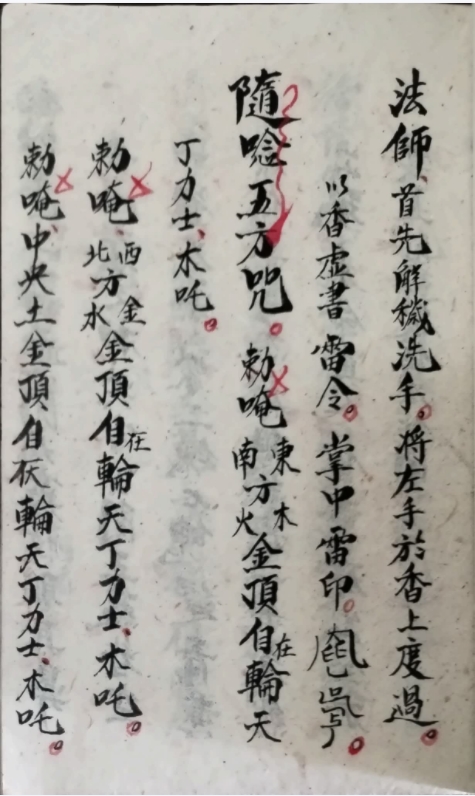 法師、首先解穢洗手。将左手於香上度過。
以香虛書雷令。掌中雷印。
隨唸五方咒。勅唵東南方木火金頂自在輪天
丁力士、木吒。
勅唵、西北方金水金頂自在輪天丁力士、木吒。
勅唵、中央土金頂自輪天丁力士、木吒。